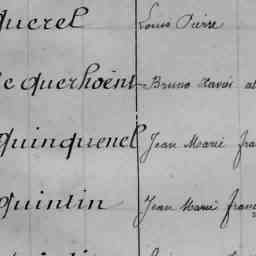 querel Louis Pierre
e querhoënt Bruno Xavier al
quinquenel Jean Marie fra
quintin Jean Marie franç